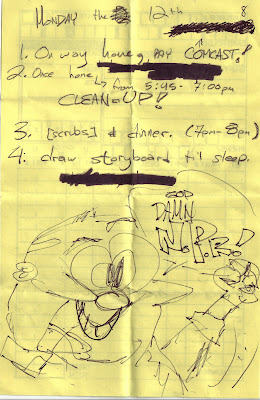 MONDAY the 12th 8
1. On way home, pay COMCAST!
2. Once home
↳ from 5:45 - 7:00pm
CLEAN-UP!
3. [scrubs] & dinner. (7pm-8pm)
4: draw storyboard til sleep.
GOD
DAMN
N.P.R.!